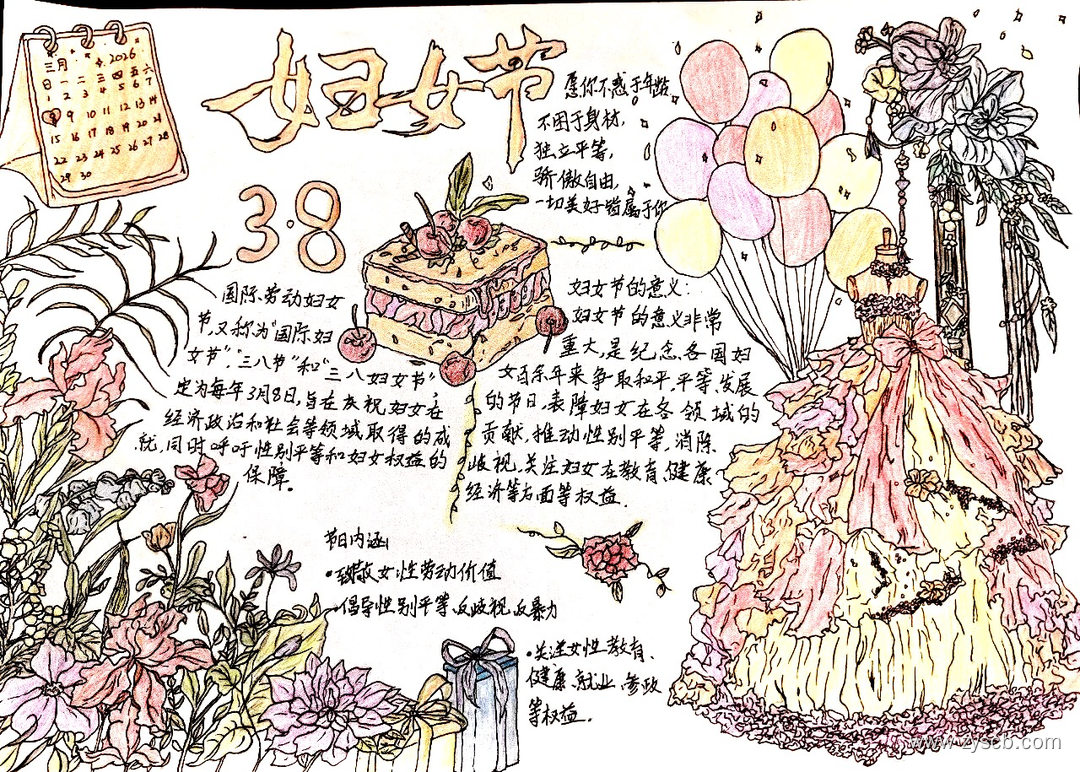 三月 2026
日 一 二 三 四 五 六
1 2 3 4 5 6 7
8 9 10 11 12 13 14
15 16 17 18 19 20 21
22 23 24 25 26 27 28
29 30
妇女节
3·8
愿你不惑于年龄
不困于身材,
独立平等,
骄傲自由,
一切美好皆属于你
国际劳动妇女
节,又称为"国际妇
女节","三八节"和"三八妇女节",
定为每年3月8日,旨在庆祝妇女在
经济政治和社会等领域取得的成
就,同时呼吁性别平等和妇女权益的
保障。
妇女节的意义:
妇女节的意义非常
重大,是纪念各国妇
女百余年来争取和平,平等、发展
的节日,表障妇女在各领域的
贡献,推动性别平等,消除
歧视,关注妇女在教育、健康
经济等方面等权益.
节日内涵
•致敬女性劳动价值
•倡导性别平等、反歧视、反暴力
•关注女性教育、
健康、就业、参政
等权益.
www.zyscb.com